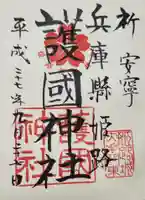 祈 安寧
兵庫縣姫路
護國神社
平成二十七年九月二十日